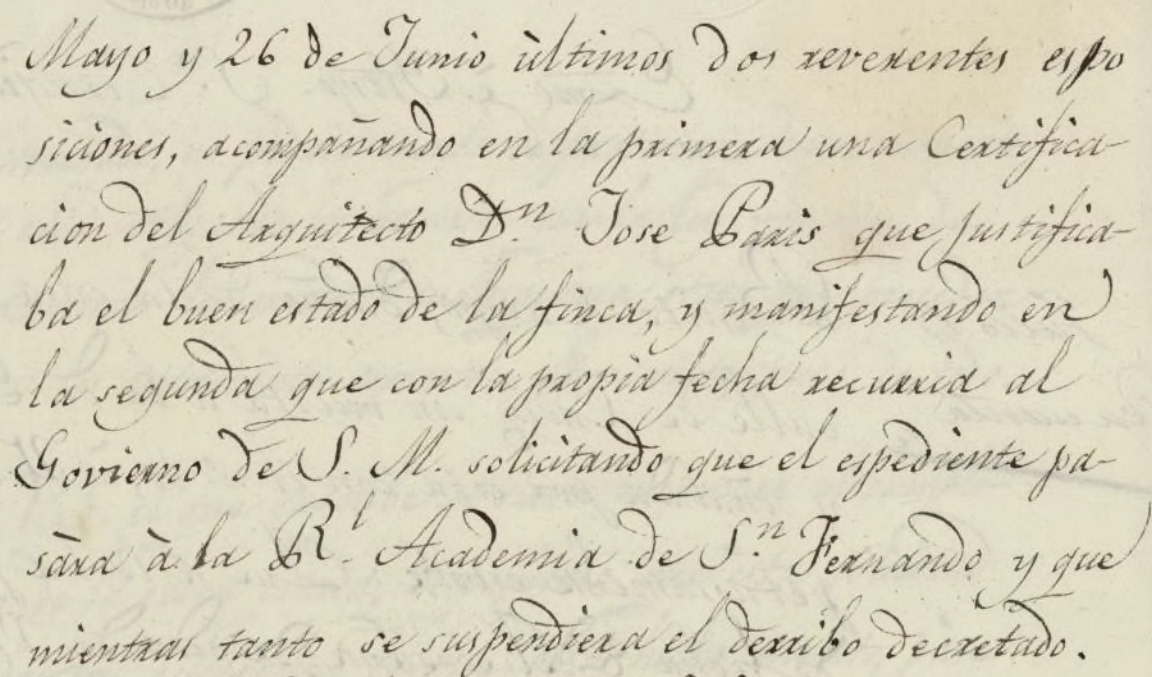 Mayo y 26 de Junio ùltimos dos reverentes espo
siciones, acompañando en la primera una Certifica-
cion del Arquitecto D.n Jose Paris que justifica-
ba el buen estado de la finca, y manifestando en
la segunda que con la propia fecha recurria al
Govierno de S. M. solicitando que el espediente pa-
sàra à la R.l Academia de S.n Fernando y que
mientras tanto se suspendiera el derribo decretado.